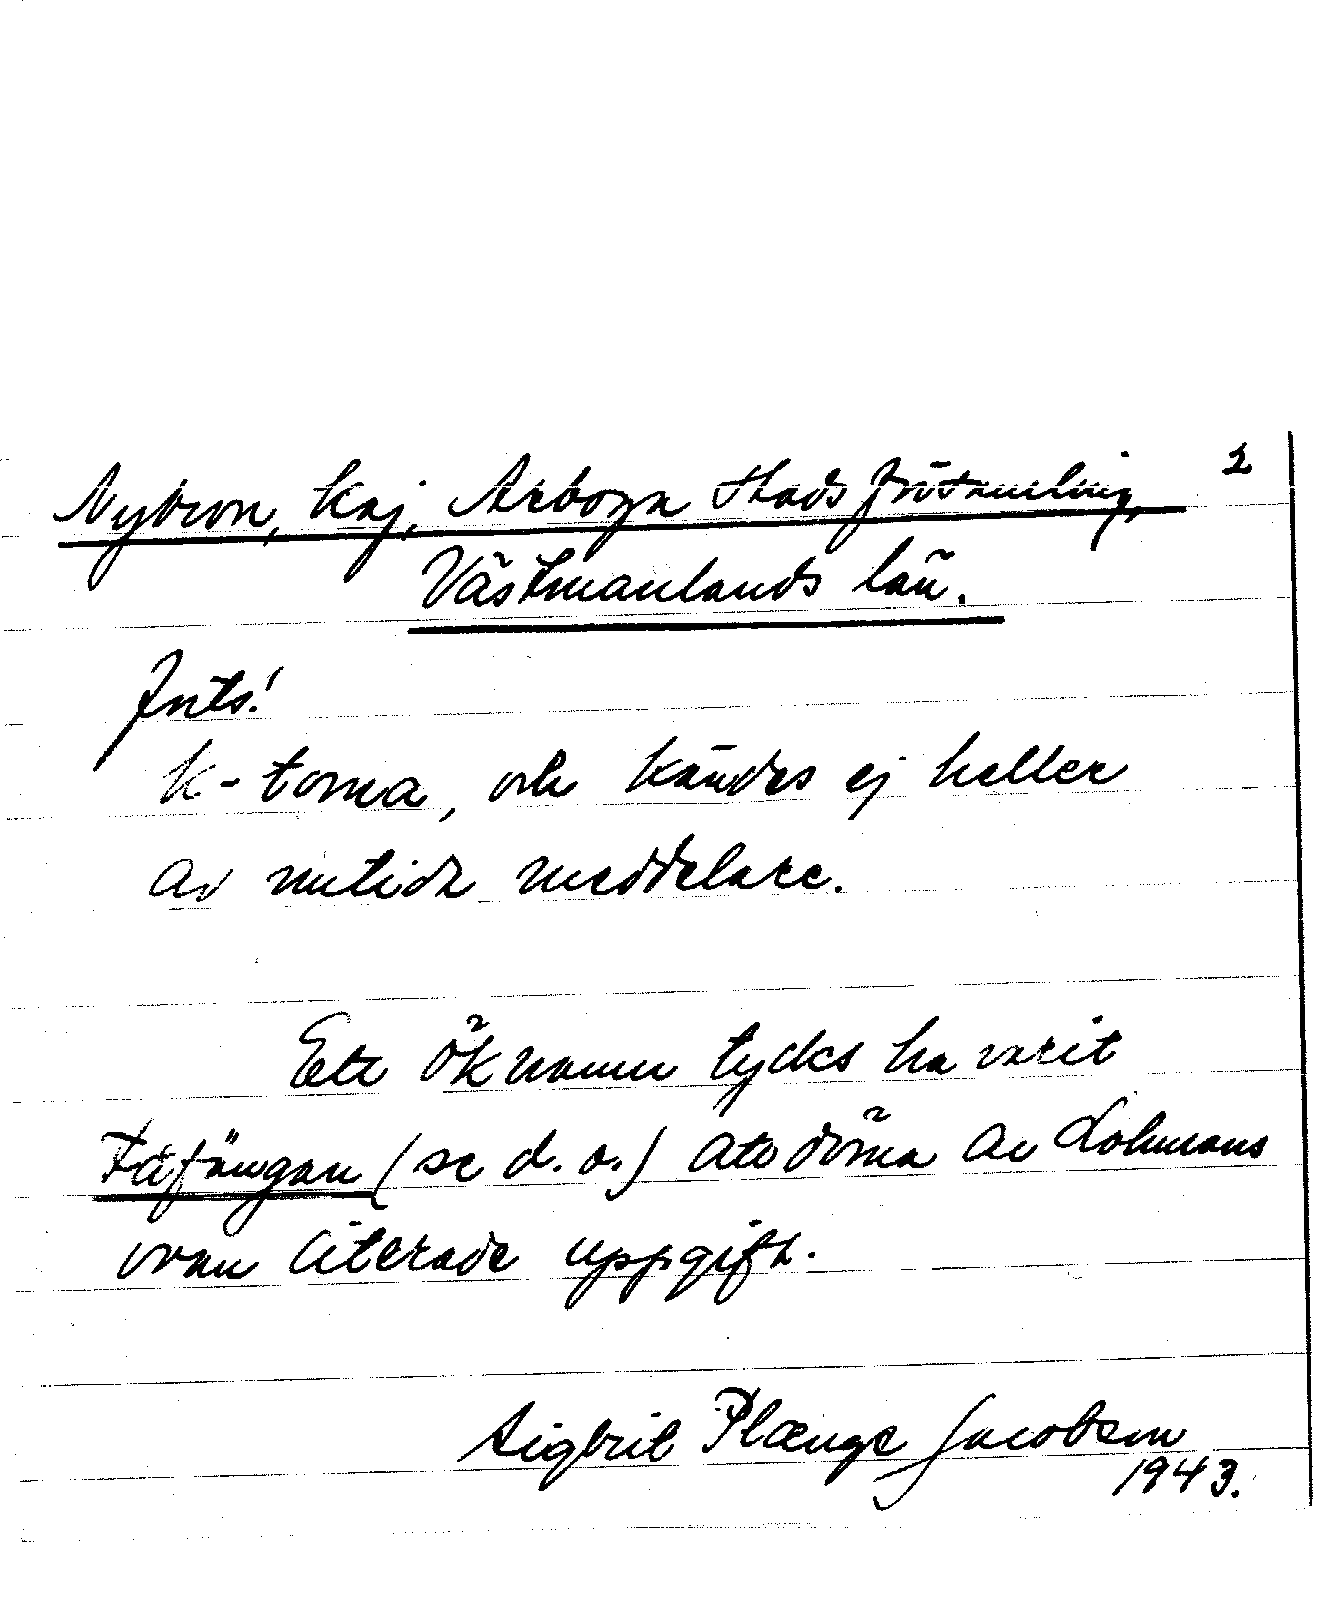 2
Nybron, kaj, Arboga stadsförsamling,
Västmanlands län.
Forts!
k-torna, och kändes ej heller
av nutida meddelare.
Ett öknamn tycks ha varit
Fåfängan (se d. o.) att döma av Lohmans
ovan citerade uppgift.
Sigbrit Plænge Jacobson
1943.